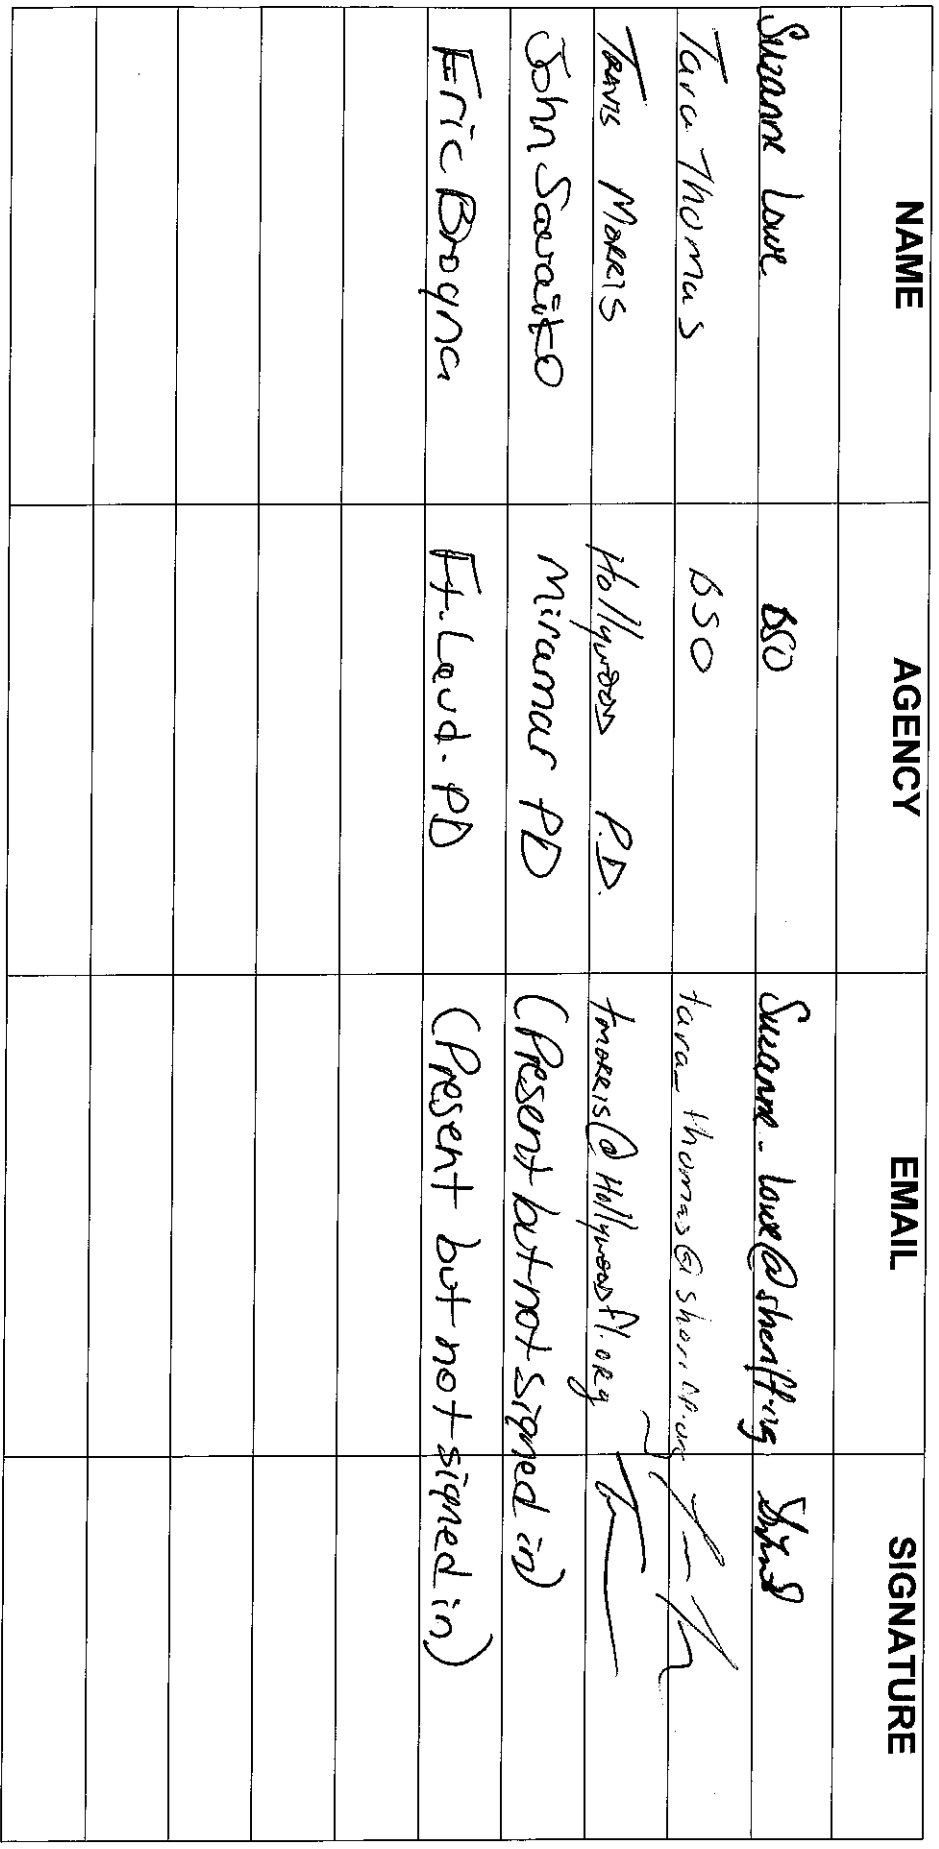 NAME AGENCY EMAIL SIGNATURE
Suzanne Lowe BSO Suzanne_Lowe@sheriff.org
Tara Thomas BSO tara_thomas@sheriff.org
TRAVIS MORRIS Hollywood P.D. tmorris@Hollywoodfl.org
John Miramar PD (Present but not signed in)
Eric Brogna Ft. Laud. PD (Present but not signed in)